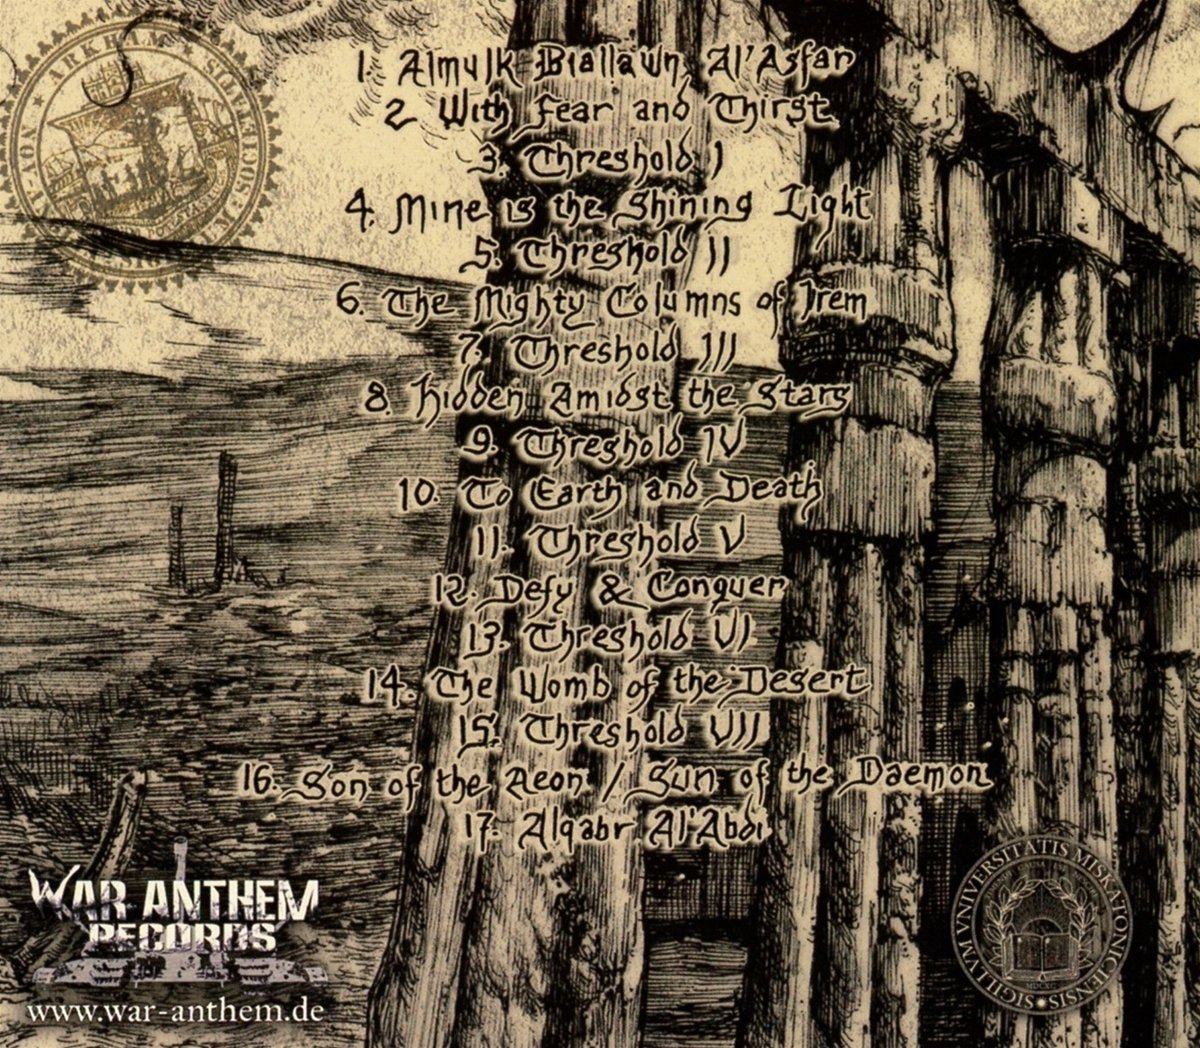 1. Almulk Biallawn Al'Asfar
2. With Fear and Thirst
3. Threshold I
4. Mine is the Shining Light
5. Threshold II
6. The Mighty Columns of Irem
7. Threshold III
8. Hidden Amidst the Stars
9. Threshold IV
10. To Earth and Death
11. Threshold V
12. Defy & Conquer
13. Threshold VI
14. The Womb of the Desert
15. Threshold VII
16. Son of the Aeon / Sun of the Daemon
17. Alqabr Al'Abdi
WAR ANTHEM
RECORDS
www.war-anthem.de
ARKHAM
SIGILLVM VNIVERSITATIS MISKATONICENSIS